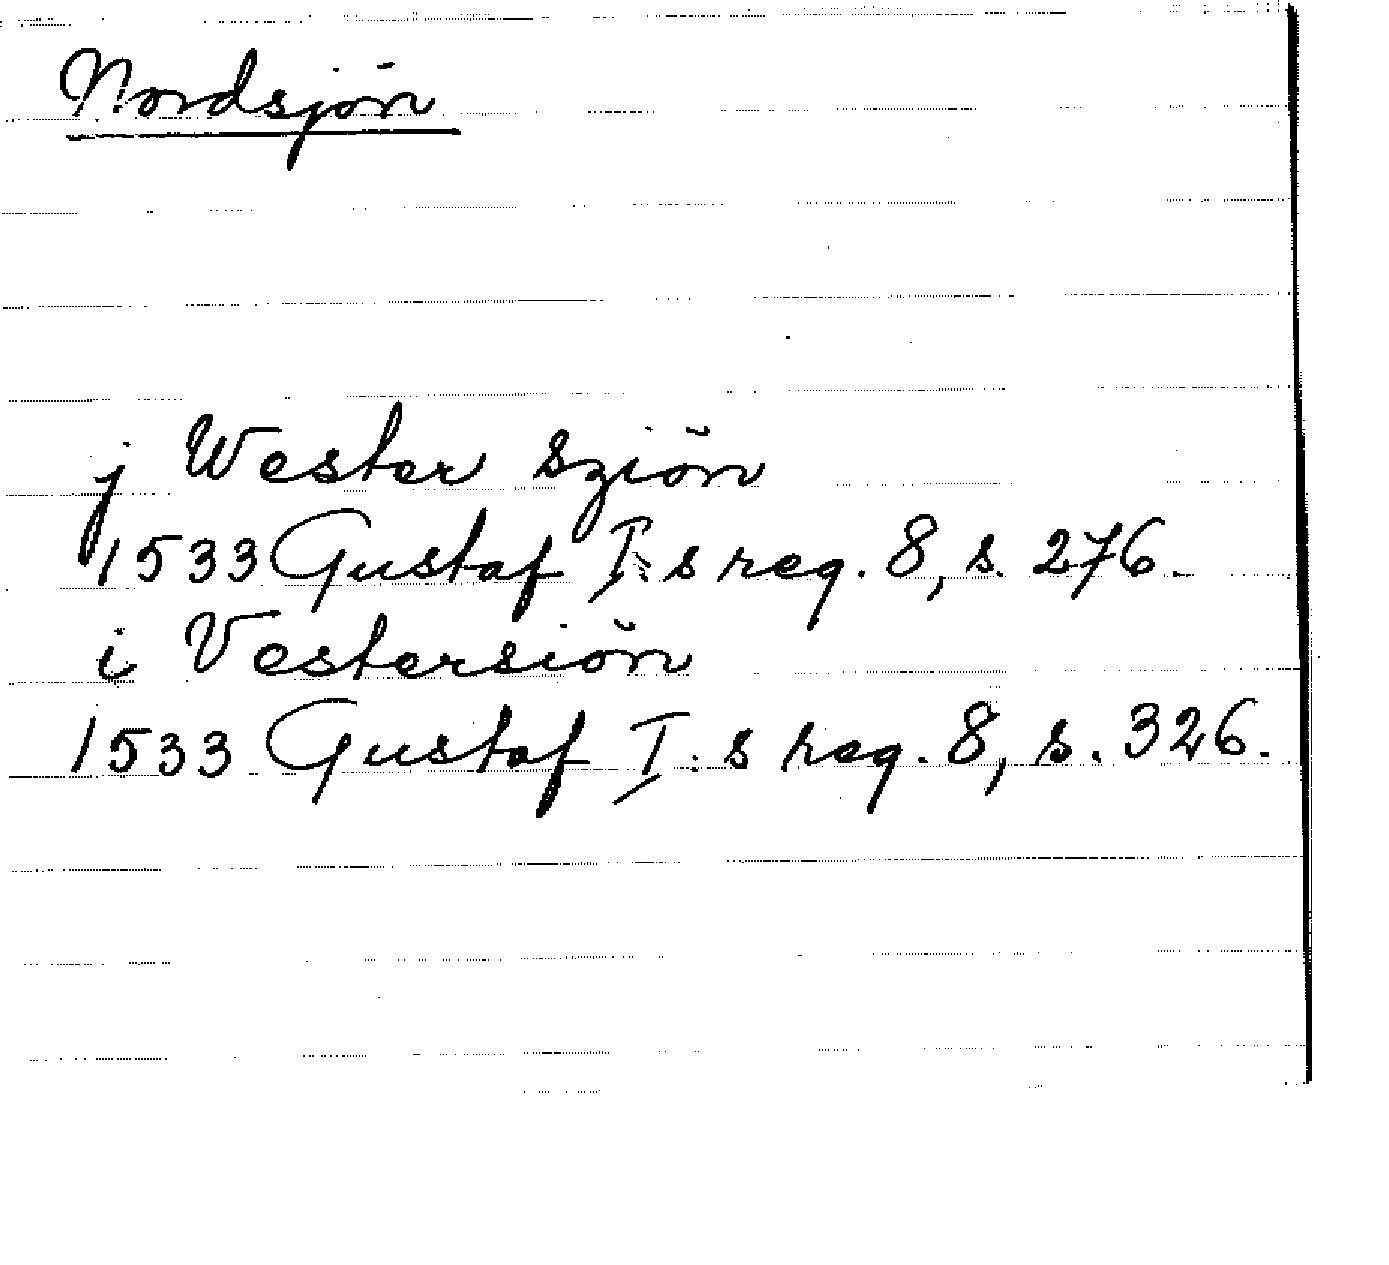 Nordsjön
j Wester sziön
1533 Gustaf I:s reg. 8, s. 276.
i Vestersiön
1533 Gustaf I:s reg. 8, s. 326.